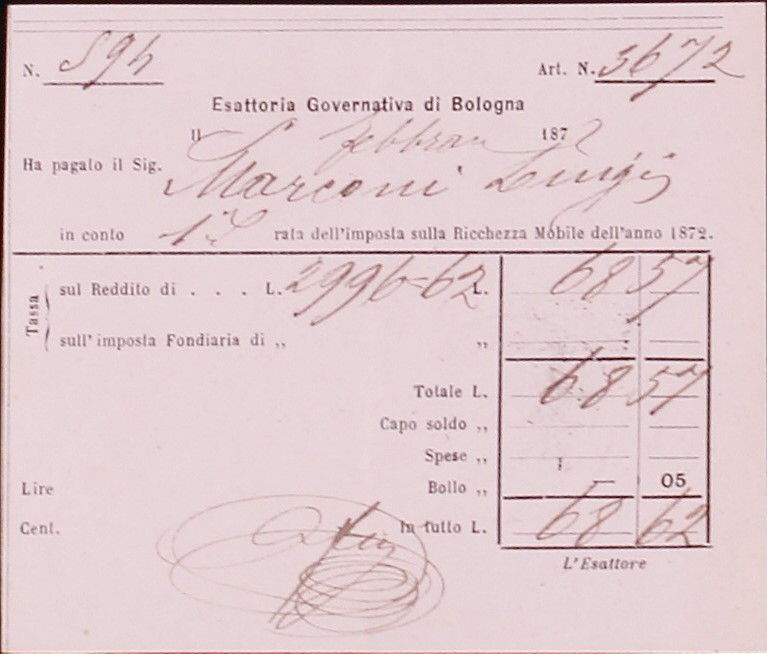 N. 594 Art. N. 3672
Esattoria Governativa di Bologna
Il febbraio 1872
Ha pagato il Sig. Marconi Luigi
in conto 1a rata dell'imposta sulla Ricchezza Mobile dell'anno 1872.
Tassa
sul Reddito di . . . L. 2996=62 L. 68 57
sull'imposta Fondiaria di „ „
Totale L. 68 57
Capo soldo „
Spese „
Bollo „ — 05
Lire
Cent. In tutto L. 68 62
L'Esattore